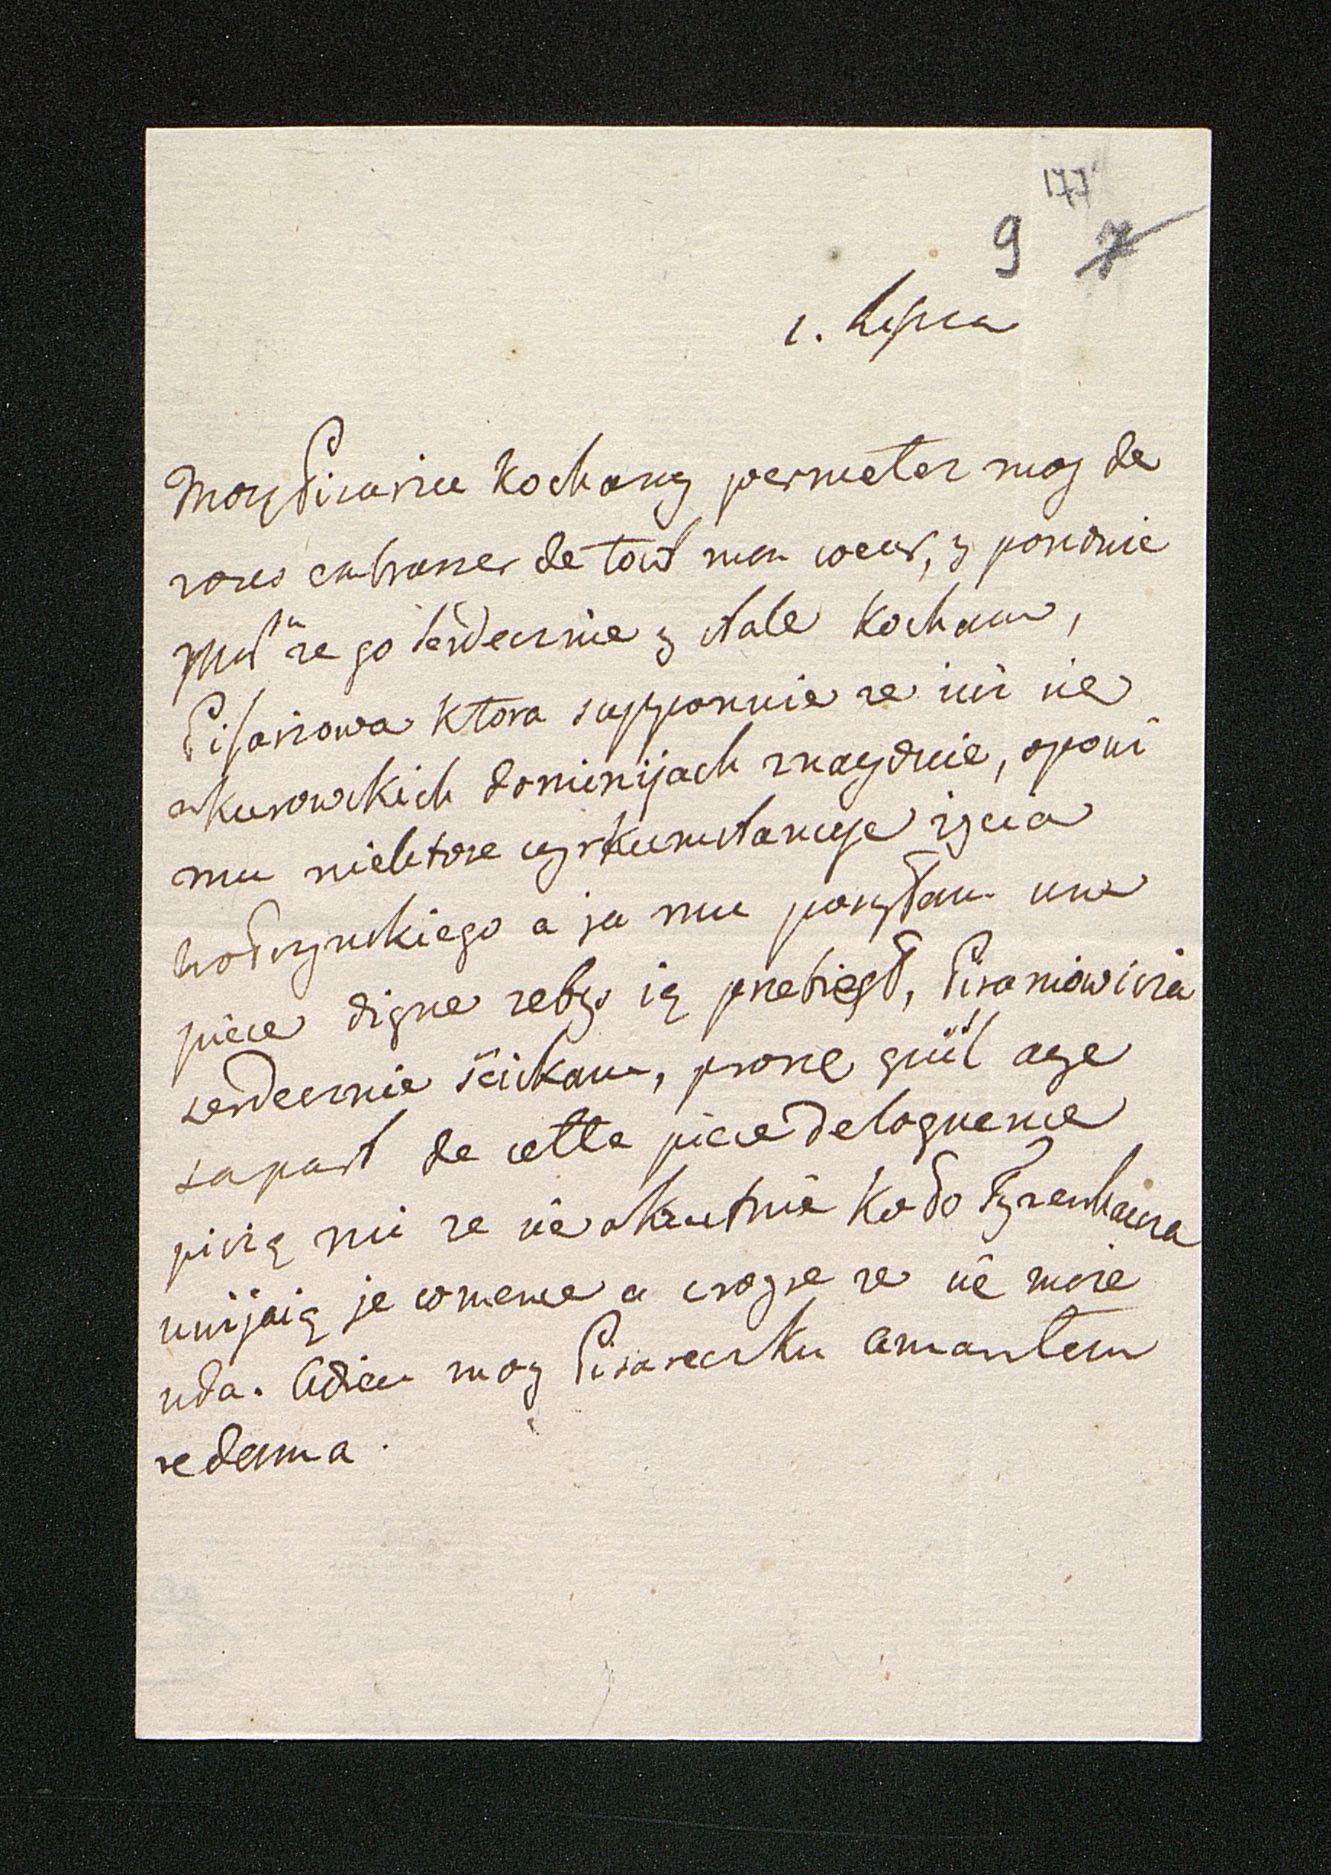 177
9 7
1. Lipca
Moy Pisarzu Kochany permetez moy de
vous embrasser de tout mon coeur, y powiedzie
że go serdecznie y stale Kocham,
Pisarzowa Ktora supponuie ze iuż ie
w kurowskich dominijach znayduie, opowi
mu niektore cyrkumstancye życia
a ja mu posyłam une
piece digne zeby ią przebiegł, Pisarzowicza
serdecznie sciskam, proszę qu'il aye
sa part de cette piece deloquence
piszą mi ze sie okrutnie Ko do Tyzenhauza
uwijaią je comence a croyre ze sie może
uda. Adieu moy Pisareczku amantem
redama.